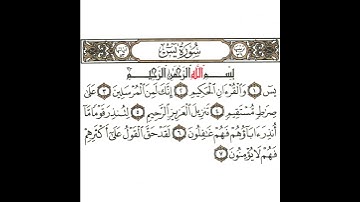 سُورَةُ يسٓ
بِسْمِ ٱللَّهِ ٱلرَّحْمَٰنِ ٱلرَّحِيمِ
يسٓ ١ وَٱلْقُرْءَانِ ٱلْحَكِيمِ ٢ إِنَّكَ لَمِنَ ٱلْمُرْسَلِينَ ٣ عَلَىٰ
صِرَٰطٍ مُّسْتَقِيمٍ ٤ تَنزِيلَ ٱلْعَزِيزِ ٱلرَّحِيمِ ٥ لِتُنذِرَ قَوْمًا مَّآ
أُنذِرَ ءَابَآؤُهُمْ فَهُمْ غَٰفِلُونَ ٦ لَقَدْ حَقَّ ٱلْقَوْلُ عَلَىٰٓ أَكْثَرِهِمْ
فَهُمْ لَا يُؤْمِنُونَ ٧